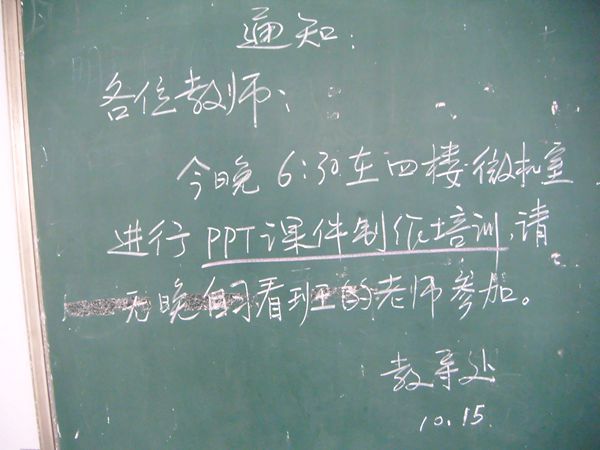 通知:
各位教师:
今晚6:30在四楼微机室
进行PPT课件制作培训,请
无晚自习看班的老师参加。
教导处
10.15